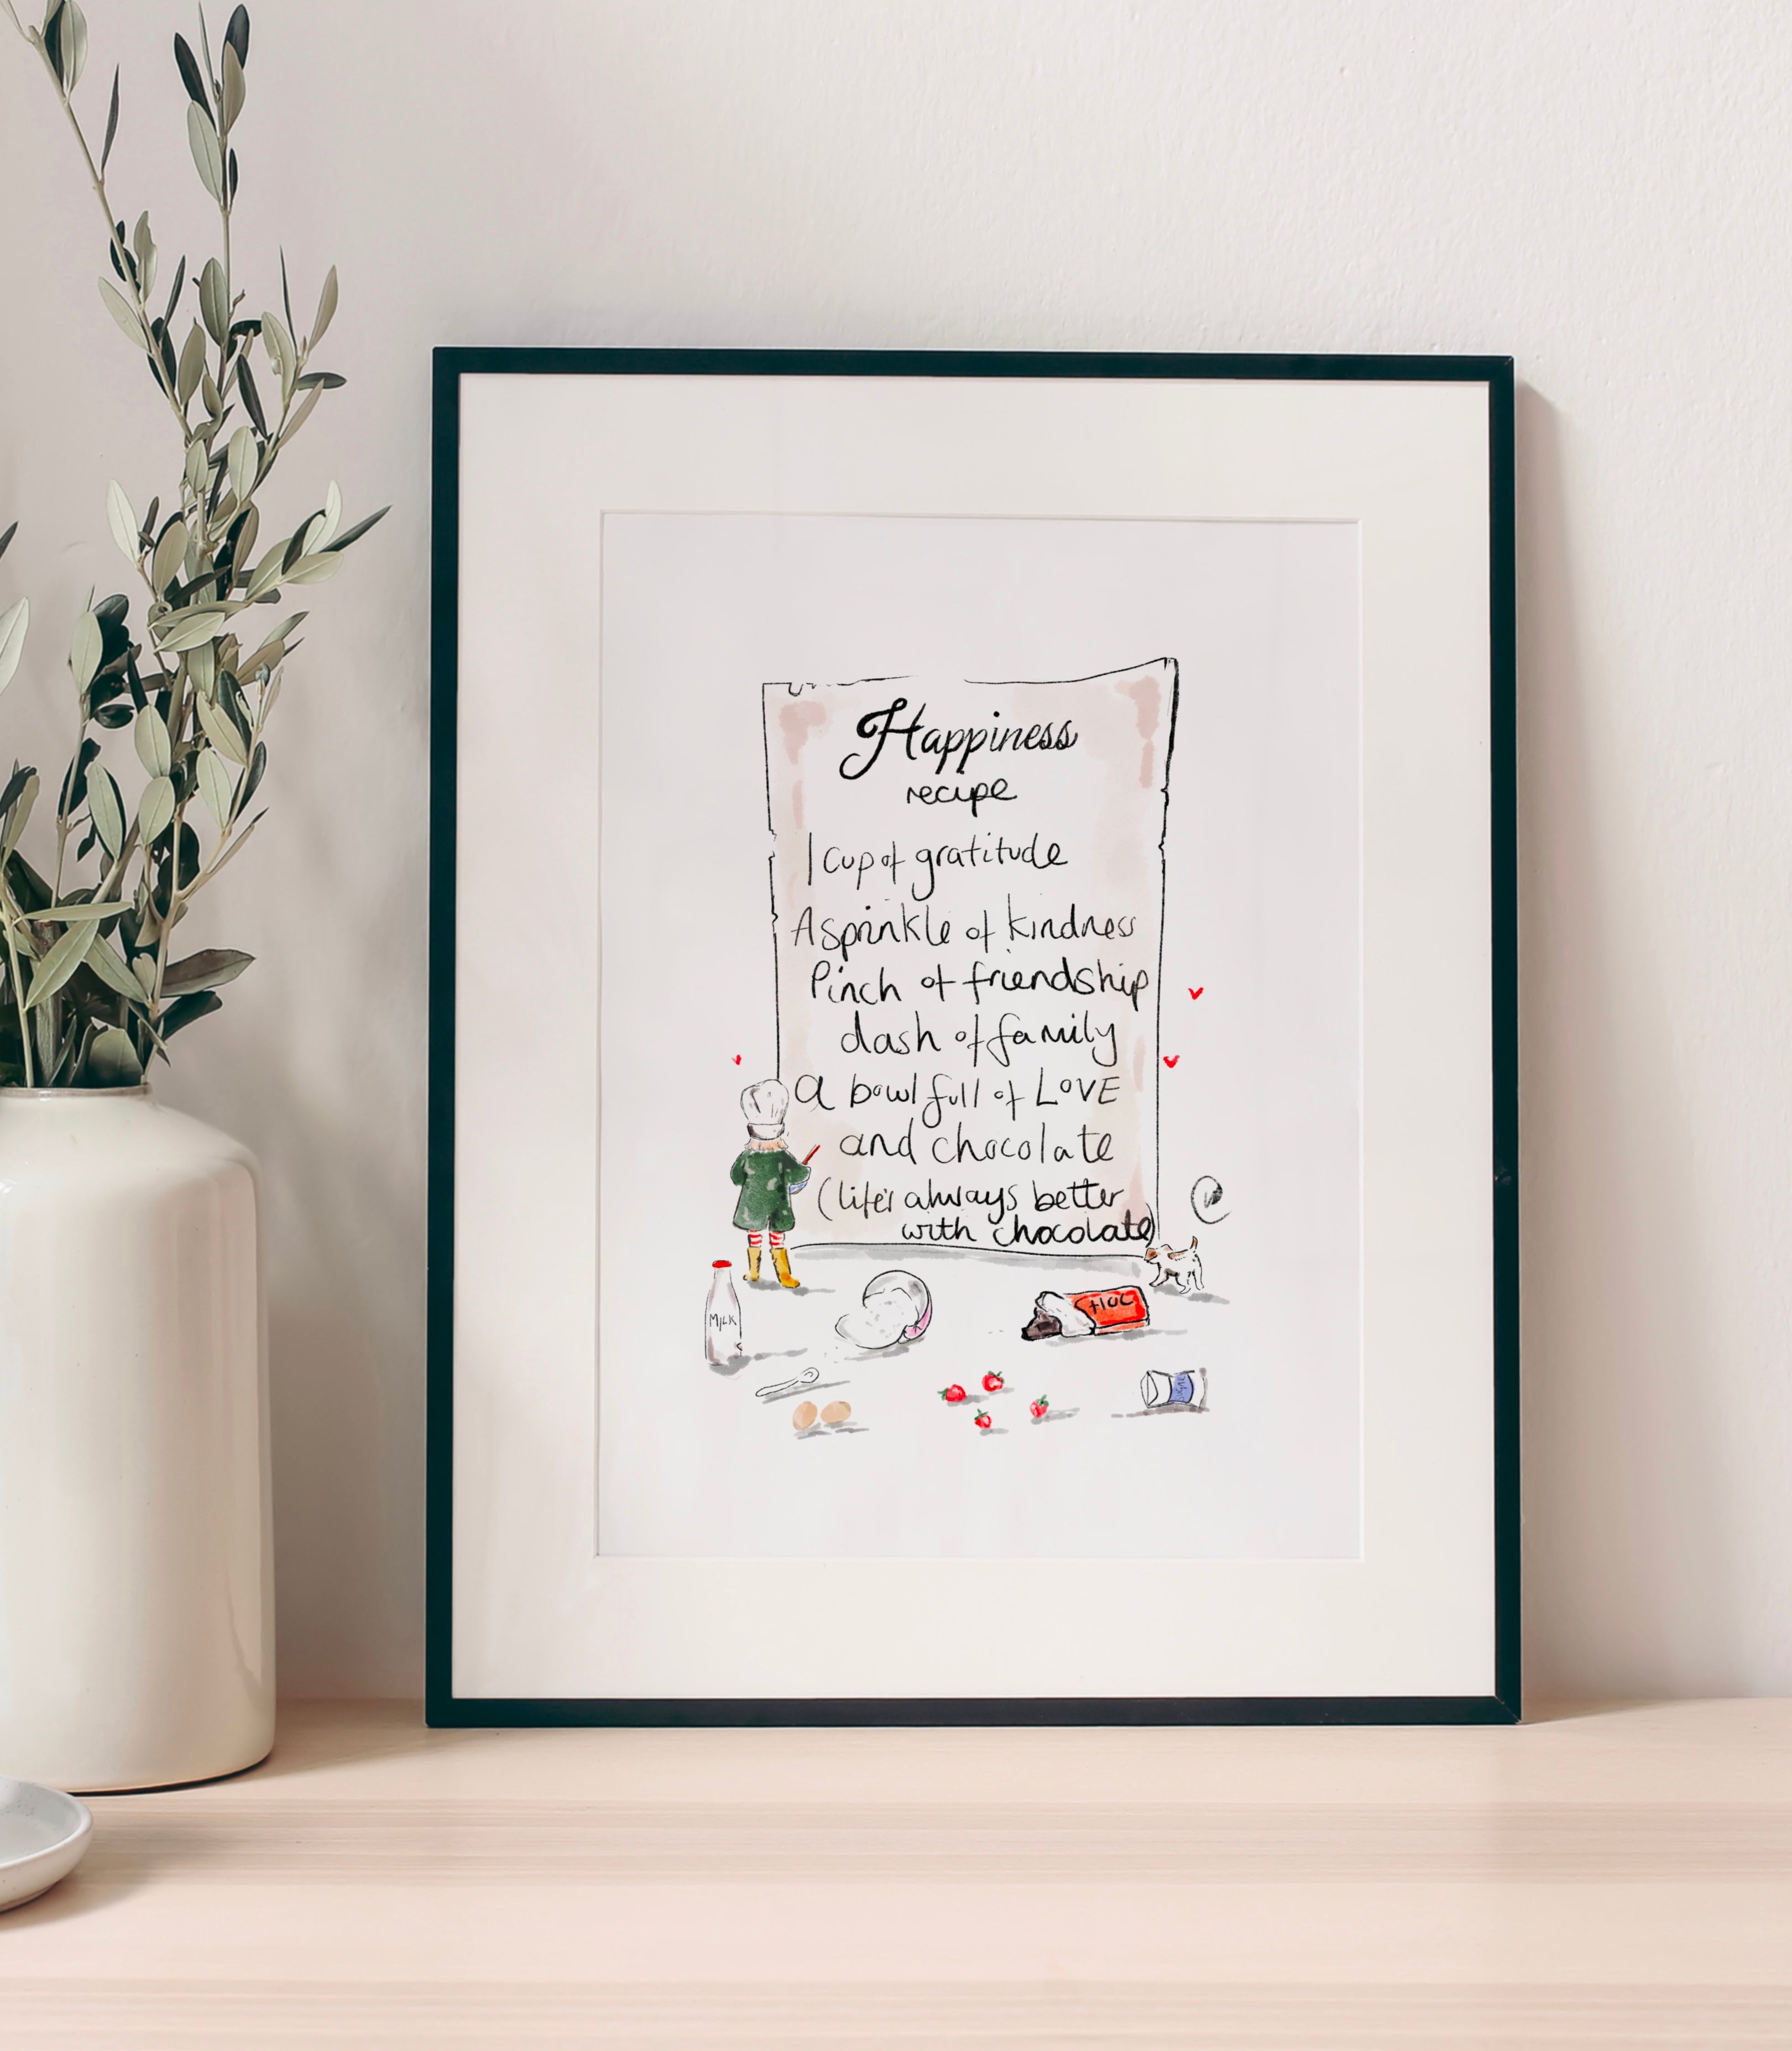 Happiness
recipe
1 cup of gratitude
A sprinkle of kindness
Pinch of friendship
dash of family
a bowl full of LOVE
and chocolate
(life's always better
with chocolate)
MILK